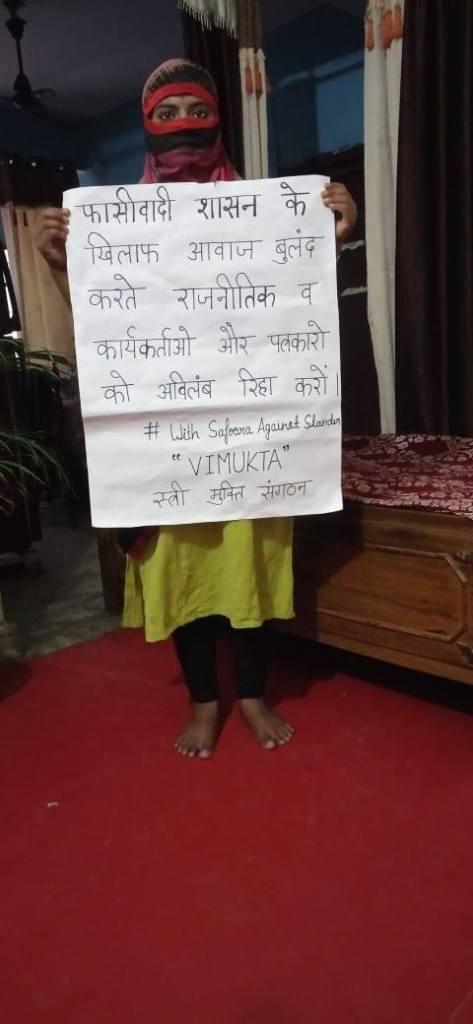 फासीवादी शासन के
खिलाफ आवाज बुलंद
करते राजनीतिक व
कार्यकर्ताओ और पत्रकारो
को अविलंब रिहा करों।
# With Safoora Against Slander
“VIMUKTA”
स्त्री मुक्ति संगठन